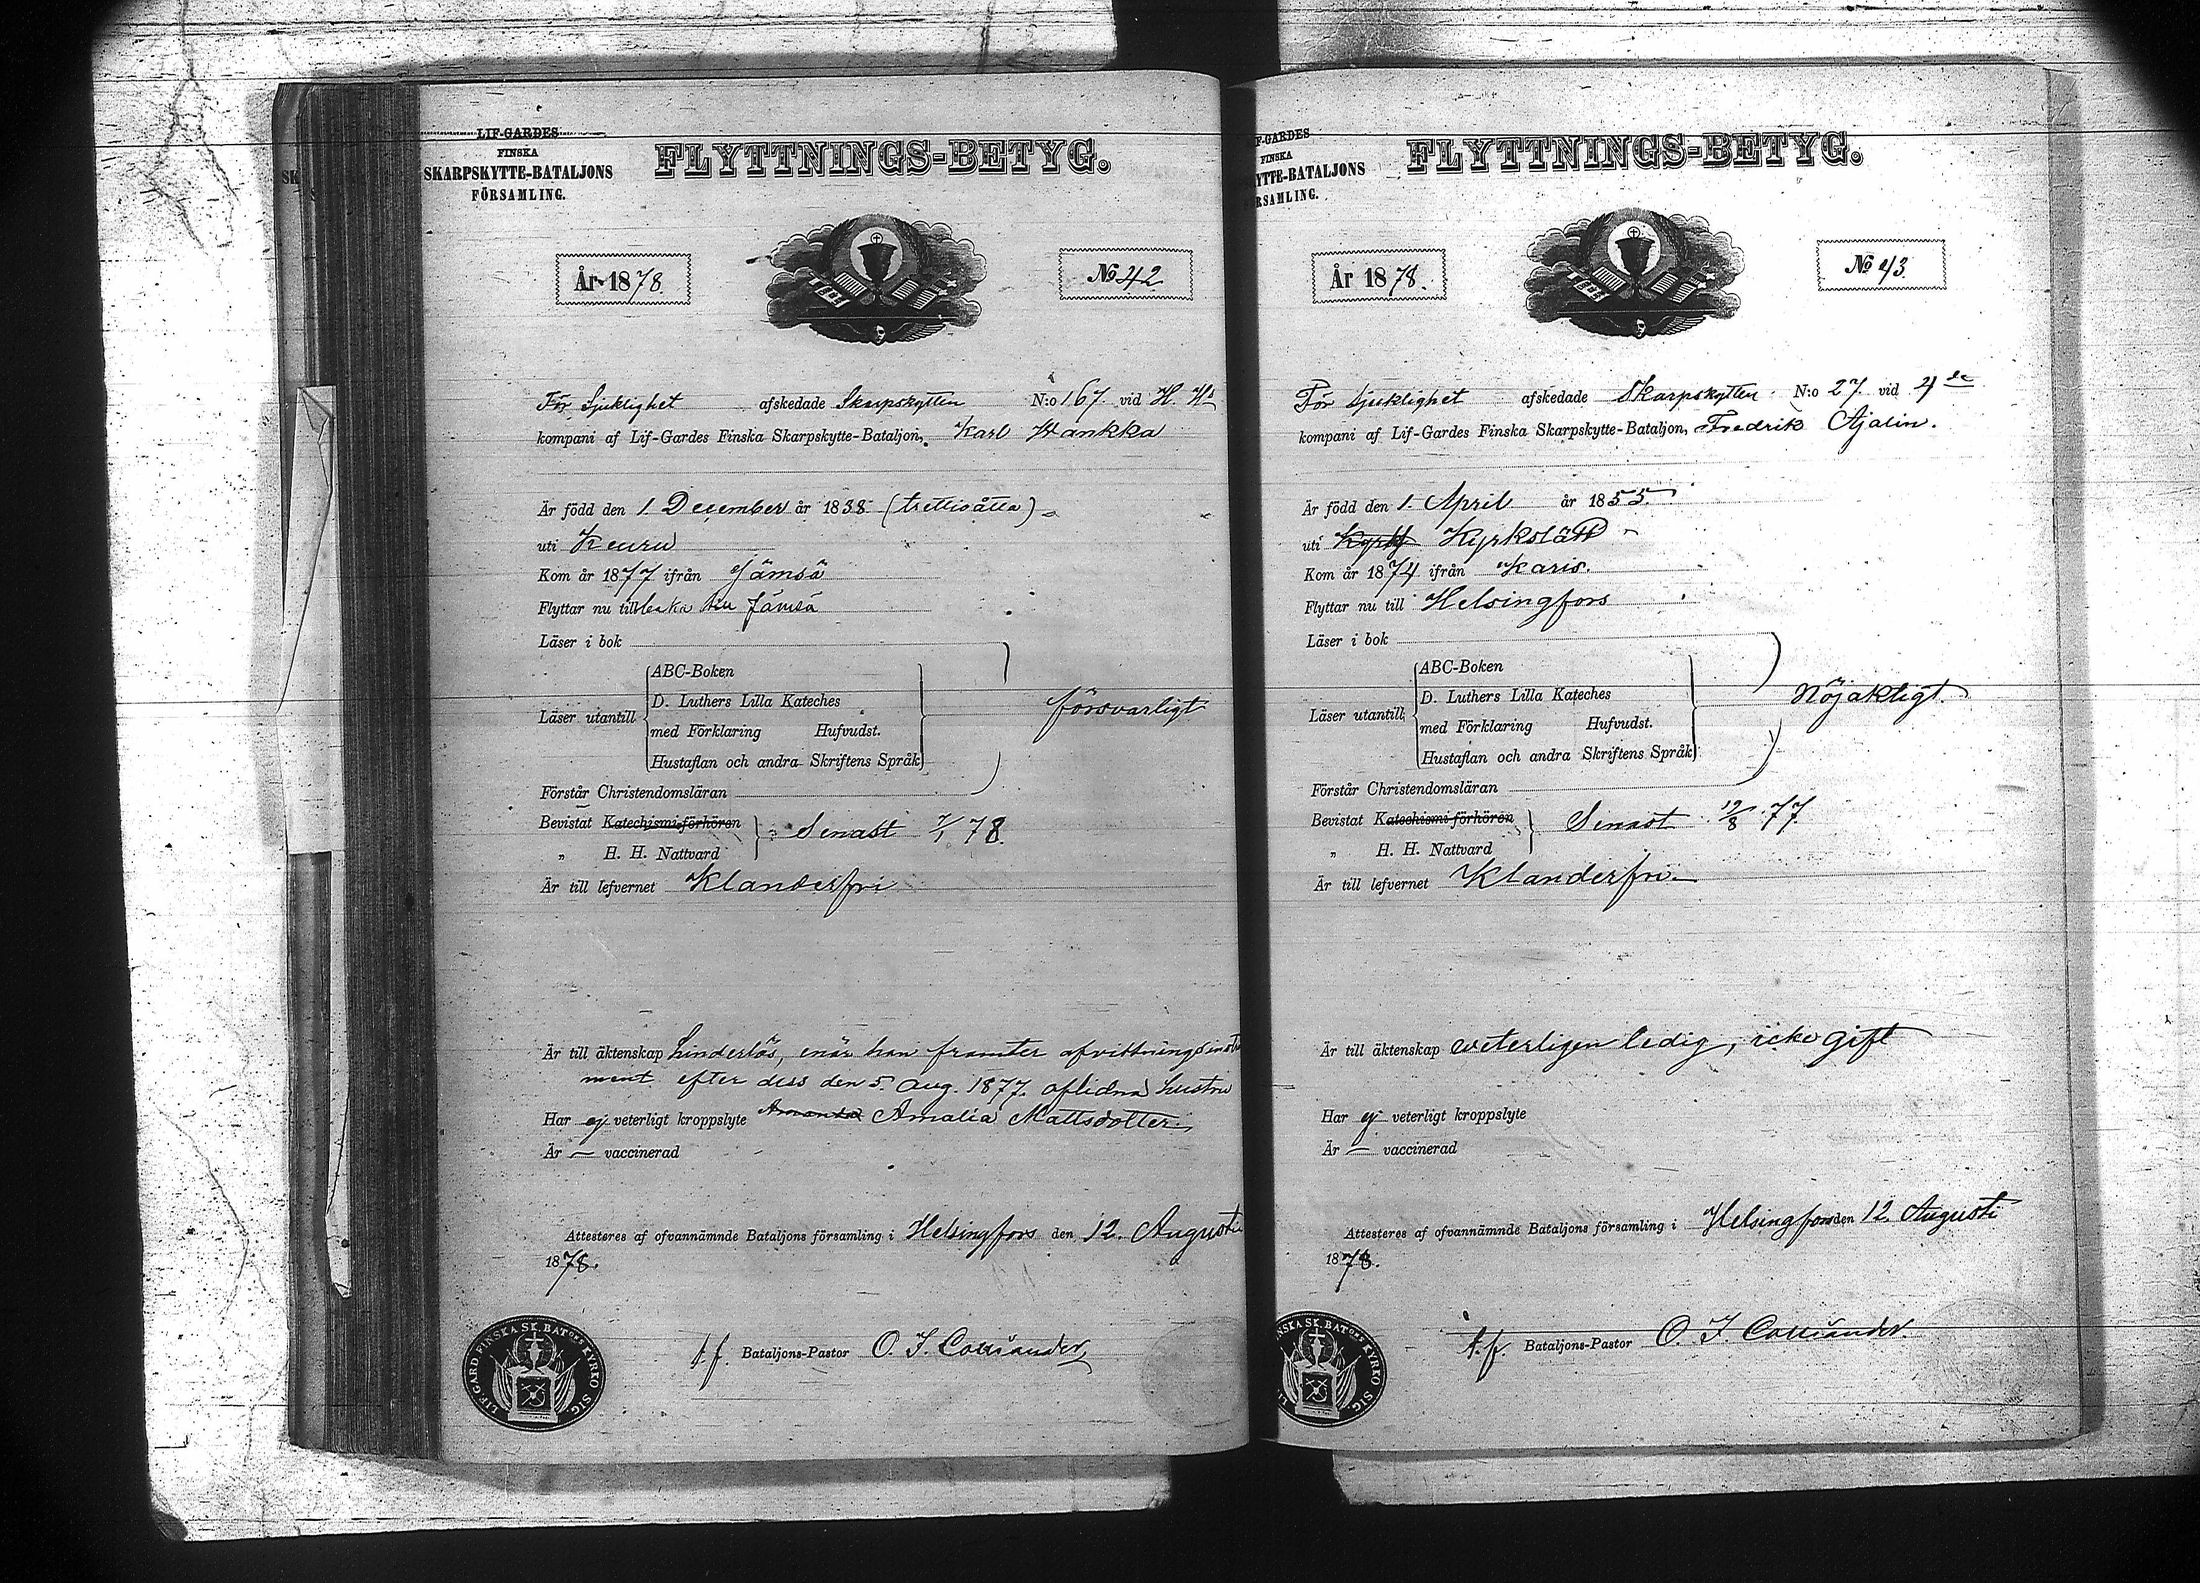 LIF-GARDES
FINSKA
SKARPSKYTTE-BATALJONS
FÖRSAMLING.
FLYTTNINGS-BETYG.
År 1878.
No 42
För Sjuklighet afskedade Skarpskytten N:o 167 vid H. Hs
kompani af Lif-Gardes Finska Skarpskytte-Bataljon, Karl Hankka
Är född den 1 December år 1838 (trettioåtta)
uti Keuru
Kom år 1877 ifrån Jämsä
Flyttar nu tillbaka till Jämsä
Läser i bok
Läser utantill
ABC-Boken
D. Luthers Lilla Kateches
med Förklaring Hufvudst.
Hustaflan och andra Skriftens Språk
försvarligt
Förstår Christendomsläran
Bevistat Katechismi-förhören
Senast 7/1 78.
„ H. H. Nattvard
Är till lefvernet Klanderfri
Är till äktenskap hinderlös, enär han framter afvittringsinstru
ment efter dess den 5. Aug. 1877. aflidna hustru
Har ej veterligt kroppslyte Amanda Amalia Mattsdotter.
Är — vaccinerad
Attesteras af ofvannämnde Bataljons församling i Helsingfors den 12. Augusti
1878.
t.f. Bataljons-Pastor O. I. Colliander
LIF.GARD.FINSKA SK.BATONS KYRKO SIG.
F-GARDES
FINSKA
YTTE-BATALJONS
RSAMLING.
FLYTTNINGS-BETYG.
År 1878.
No 43
För sjuklighet afskedade Skarpskytten N:o 27. vid 4de
kompani af Lif-Gardes Finska Skarpskytte-Bataljon, Fredrik Ajalin.
Är född den 1. April år 1855
uti Kyrk Kyrkslätt
Kom år 1874 ifrån Karis.
Flyttar nu till Helsingfors
Läser i bok
Läser utantill
ABC-Boken
D. Luthers Lilla Kateches
med Förklaring Hufvudst.
Hustaflan och andra Skriftens Språk
Nöjaktigt.
Förstår Christendomsläran
Bevistat Katechismi-förhören
Senast 19/8 77.
„ H. H. Nattvard
Är till lefvernet Klanderfri
Är till äktenskap veterligen ledig, icke gift
Har ej veterligt kroppslyte
Är — vaccinerad
Attesteras af ofvannämnde Bataljons församling i Helsingfors den 12. Augusti
1878.
t.f. Bataljons-Pastor O. I. Colliander.
NSKA SK.BATONS KYRKO SIG.